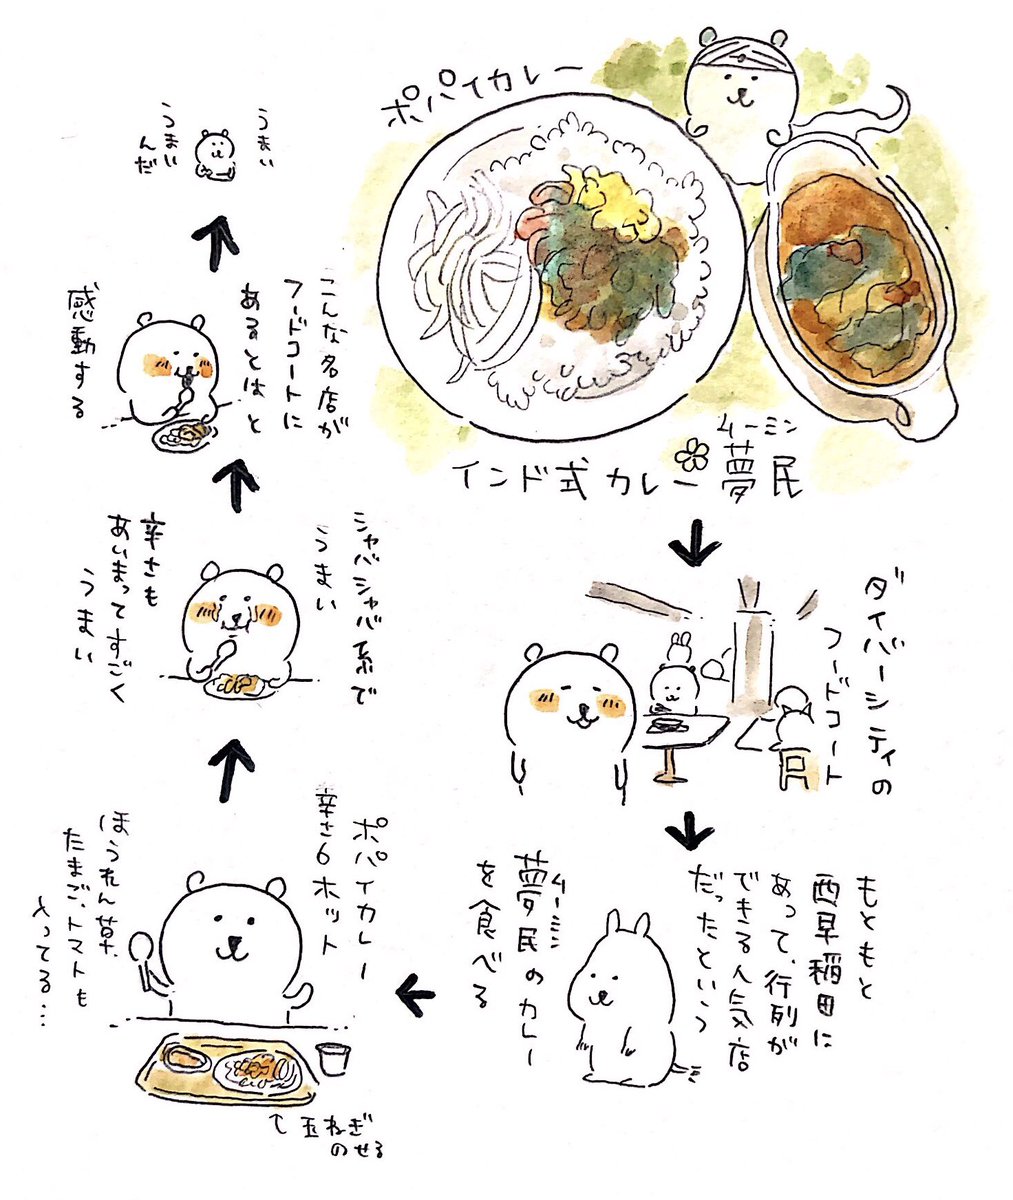 ポパイカレー
ムーミン
インド式カレー夢民
ダイバーシティの
フードコート
もともと
西早稲田に
あって、行列が
できる人気店
だったという
ムーミン
夢民のカレー
を食べる
ポパイカレー
辛さ6ホット
ほうれん草、
たまご、トマトも
入ってる…
玉ねぎ
のせる
シャバシャバ系で
うまい
辛さも
あいまってすごく
うまい
こんな名店が
フードコートに
あるとはと
感動する
うまい
うまい
んだ